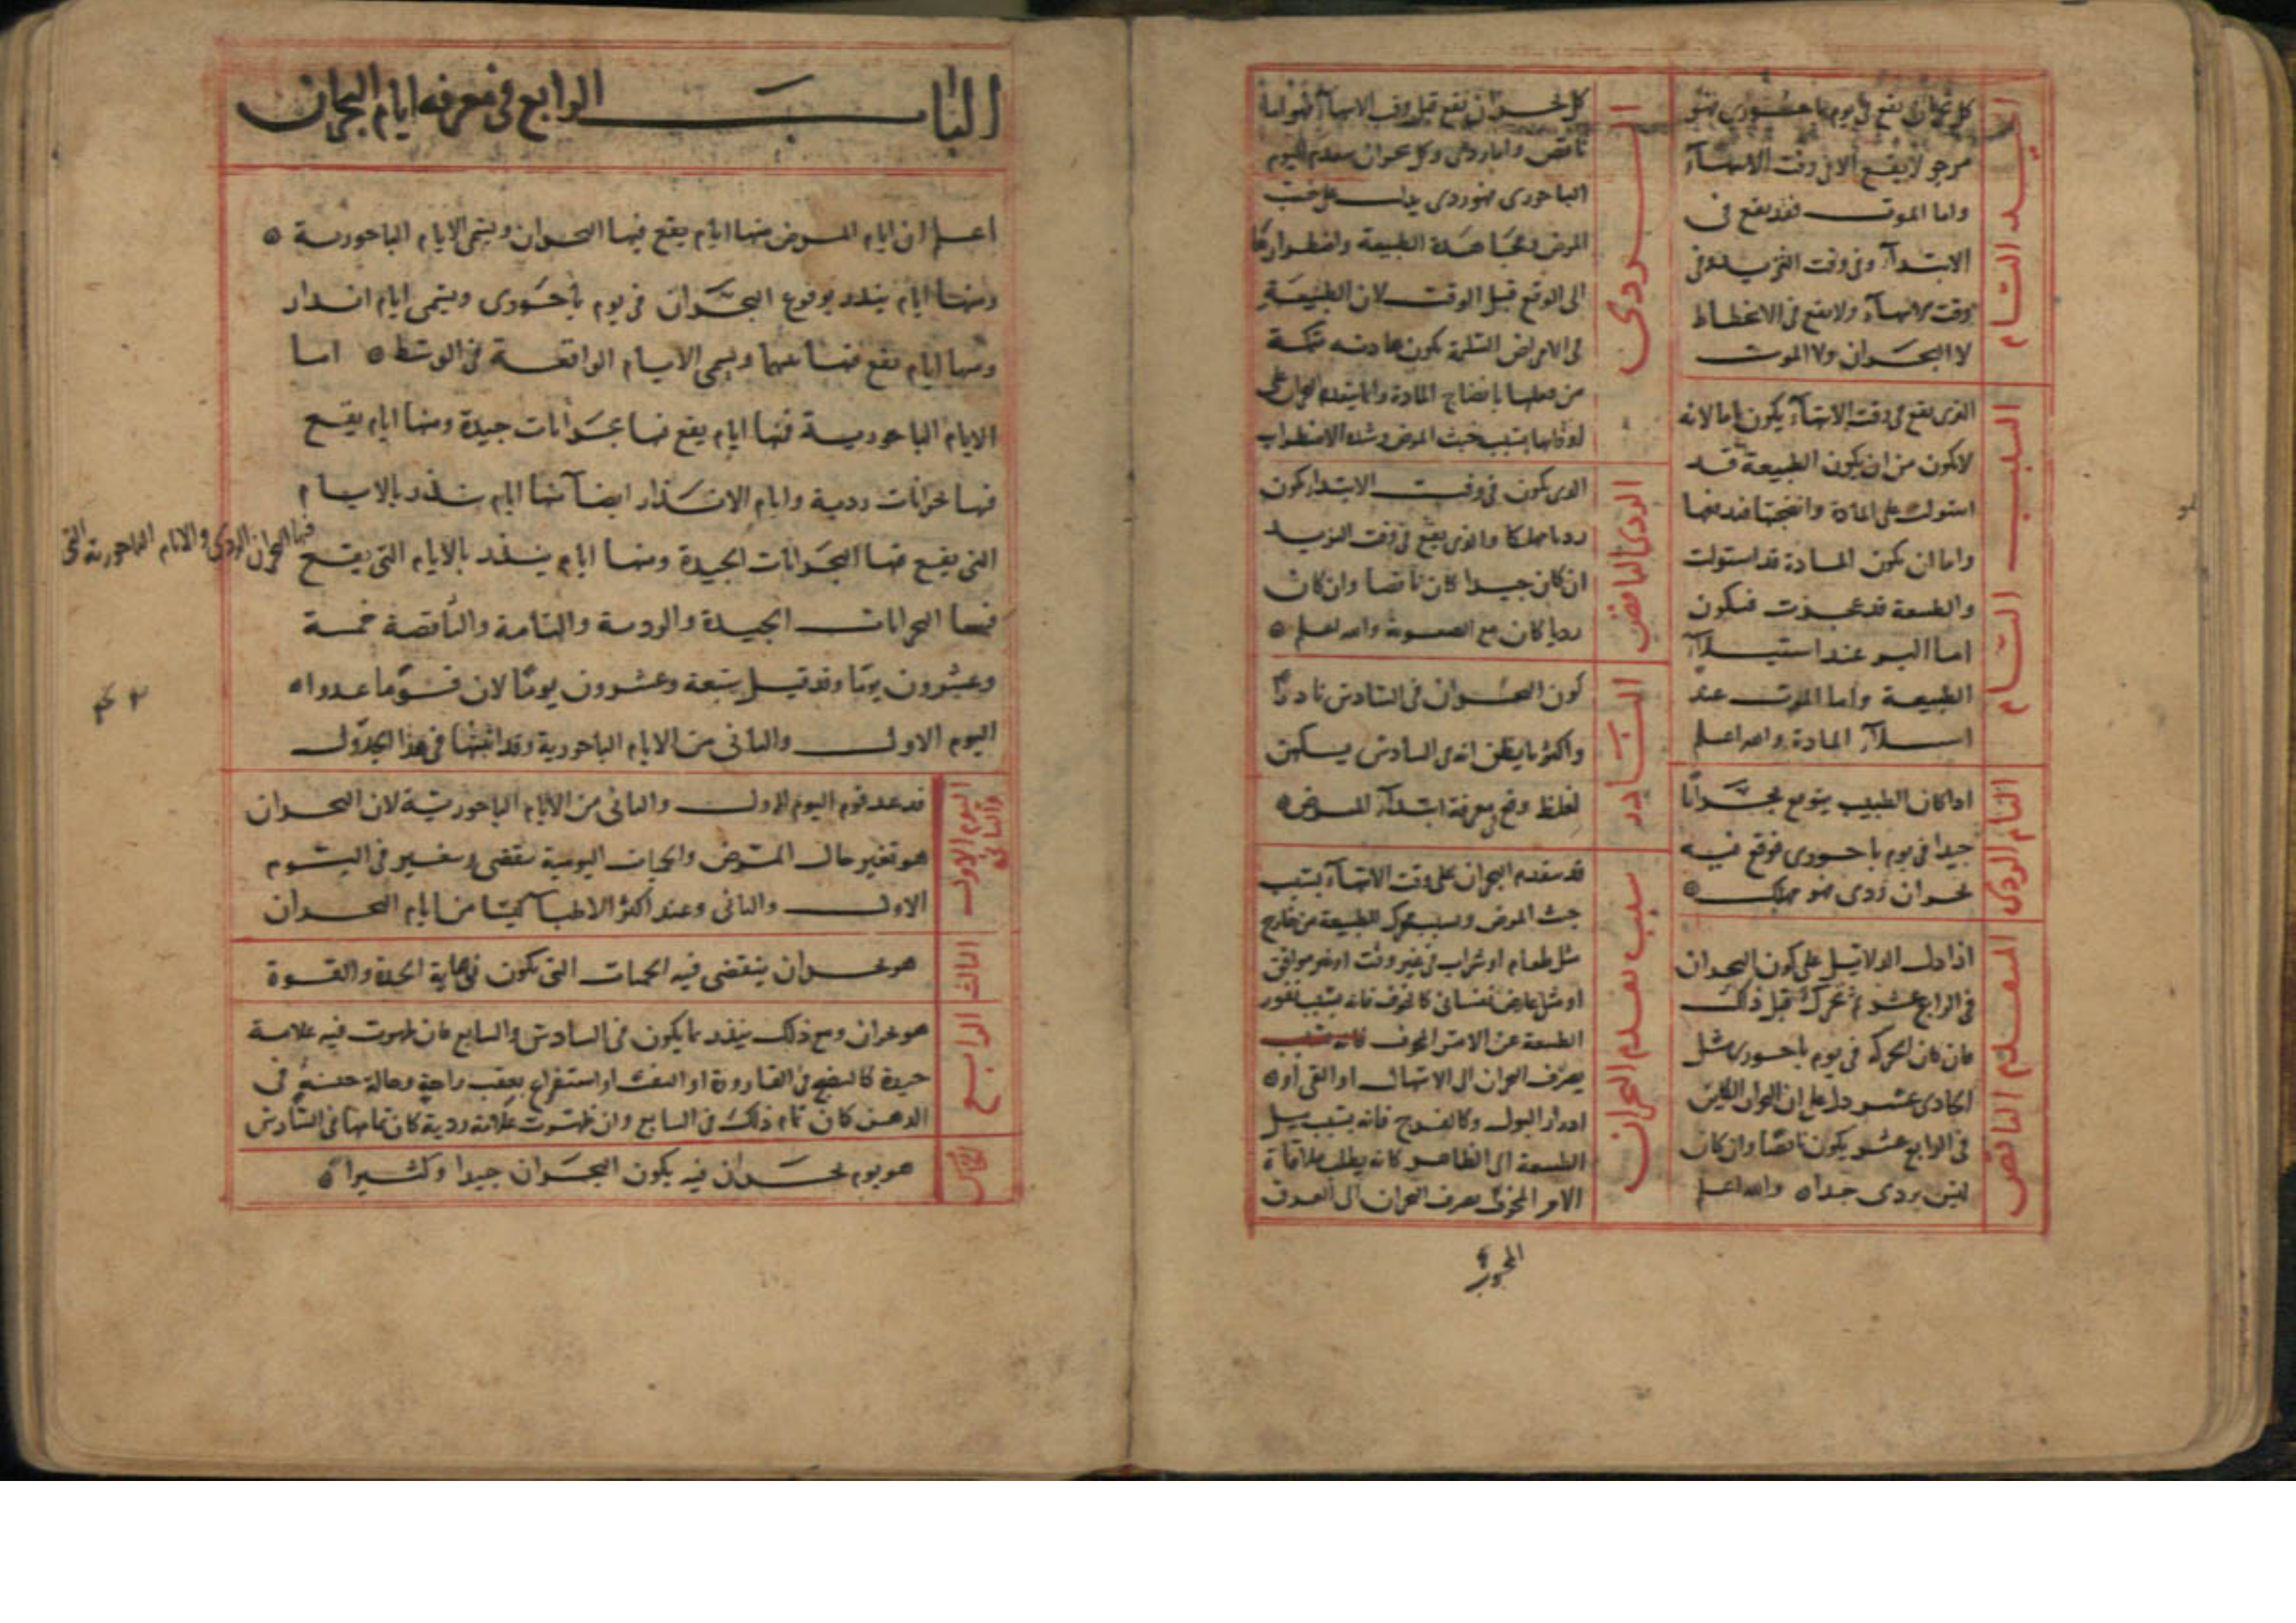 الجيد التام
كل بحران يقع في يوم باحوري فهو
مرجو لا يقع الا في وقت الانتهاء
واما الموت فقد يقع في
الابتداء وفي وقت التزيد وفي
وقت الانتهاء ولا يقع في الانحطاط
لا البحران ولا الموت
السبب التام
الذي يقع في وقت الانتهاء يكون اما لانه
لا يكون من ان يكون الطبيعة قد
استولت على المادة وانضجتها فتدفعها
واما ان تكون المادة قد استولت
والطبيعة قد عجزت فيكون
اما البر عند استيلاء
الطبيعة واما الموت عند
استيلاء المادة والله اعلم
التام الردي
اذا كان الطبيب يتوقع بحرانا
جيدا في يوم باحوري فوقع فيه
بحران ردي فهو مهلك
المتقدم الناقص
اذا دل الدلائل على كون البحران
في الرابع عشر ثم تحرك قبل ذلك
فان كان الحركة في يوم باحوري مثل
الحادي عشر دل على ان البحران الكاين
في الرابع عشر يكون ناقصا وان كان
ليس بردي جدا والله اعلم
الردي
كل بحران يقع قبل وقت الانتهاء فهو اما
ناقص واما ردي وكل بحران يتقدم اليوم
الباحوري فهو ردي يدل على خبث
المرض ومجاهدة الطبيعة واضطرارها
الى الدفع قبل الوقت لان الطبيعة
في الامراض السليمة تكون هادئة متمكنة
من فعلها بانضاج المادة وانما يتقدم البحران على
اوقاتها بسبب خبث المرض وشدة الاضطراب
الردي الناقص
الذي يكون في وقت الابتداء يكون
رديا مهلكا والذي يقع في وقت التزيد
ان كان جيدا كان ناقصا وان كان
رديا كان مع الصعوبة والله اعلم
النادر
كون البحران في السادس نادرا
واكثر ما يظن انه في السادس يكون
لغلط وقع في معرفة ابتداء المرض
سبب تقدم البحران
قد يتقدم البحران على وقت الانتهاء بسبب
خبث المرض وبسبب محرك للطبيعة من خارج
مثل طعام او شراب في غير وقت او غير موافق
او مثل عارض نفساني كالخوف فانه بسبب نفور
الطبيعة عن الامر المخوف فانه بسبب
يصرف البحران الى الاسهال او القي او
ادرار البول وكالفرح فانه بسبب ميل
الطبيعة الى الظاهر كانه يطلب ملاقاة
الامر المخوف يصرف البحران الى العرق
الباب الرابع في معرفة ايام البحران
اعلم ان ايام المرض منها ايام يقع فيها البحران ويسمى الايام الباحورية
ومنها ايام ينذر بوقوع البحران في يوم باحوري ويسمى ايام انذار
ومنها ايام تقع فيما بينهما ويسمى الايام الواقعة في الوسط اما
الايام الباحورية فمنها ايام يقع فيها بحرانات جيدة ومنها ايام يقع
فيها بحرانات ردية وايام الانذار ايضا منها ايام تنذر بالايام
التي يقع فيها البحرانات الجيدة ومنها ايام ينذر بالايام التي يقع
فيها البحران الردي والايام الباحورية التي
فيها البحرانات الجيدة والردية والتامة والناقصة خمسة
وعشرون يوما وقد قيل سبعة وعشرون يوما لان قوما عدوا
اليوم الاول والثاني من الايام الباحورية وقد اثبتها في هذا الجدول
اليوم الاول والثاني
قد عد قوم اليوم الاول والثاني من الايام الباحورية لان البحران
هو تغير حال المرض والحميات اليومية تنقضي وتتغير في اليوم
الاول والثاني وعند اكثر الاطباء ليسا من ايام البحران
الثالث
هو بحران ينقضي فيه الحميات التي تكون في غاية الحدة والقوة
الرابع
هو بحران ومع ذلك ينذر بما يكون في السادس والسابع فان ظهرت فيه علامة
جيدة كالنضج في القارورة او النفث او استفراغ يعقب راحة وحالة حسنة في
الذهن كان تمام ذلك في السابع وان ظهرت علامة ردية كان تمامها في السادس
الخامس
هو يوم بحران فيه يكون البحران جيدا وكثيرا